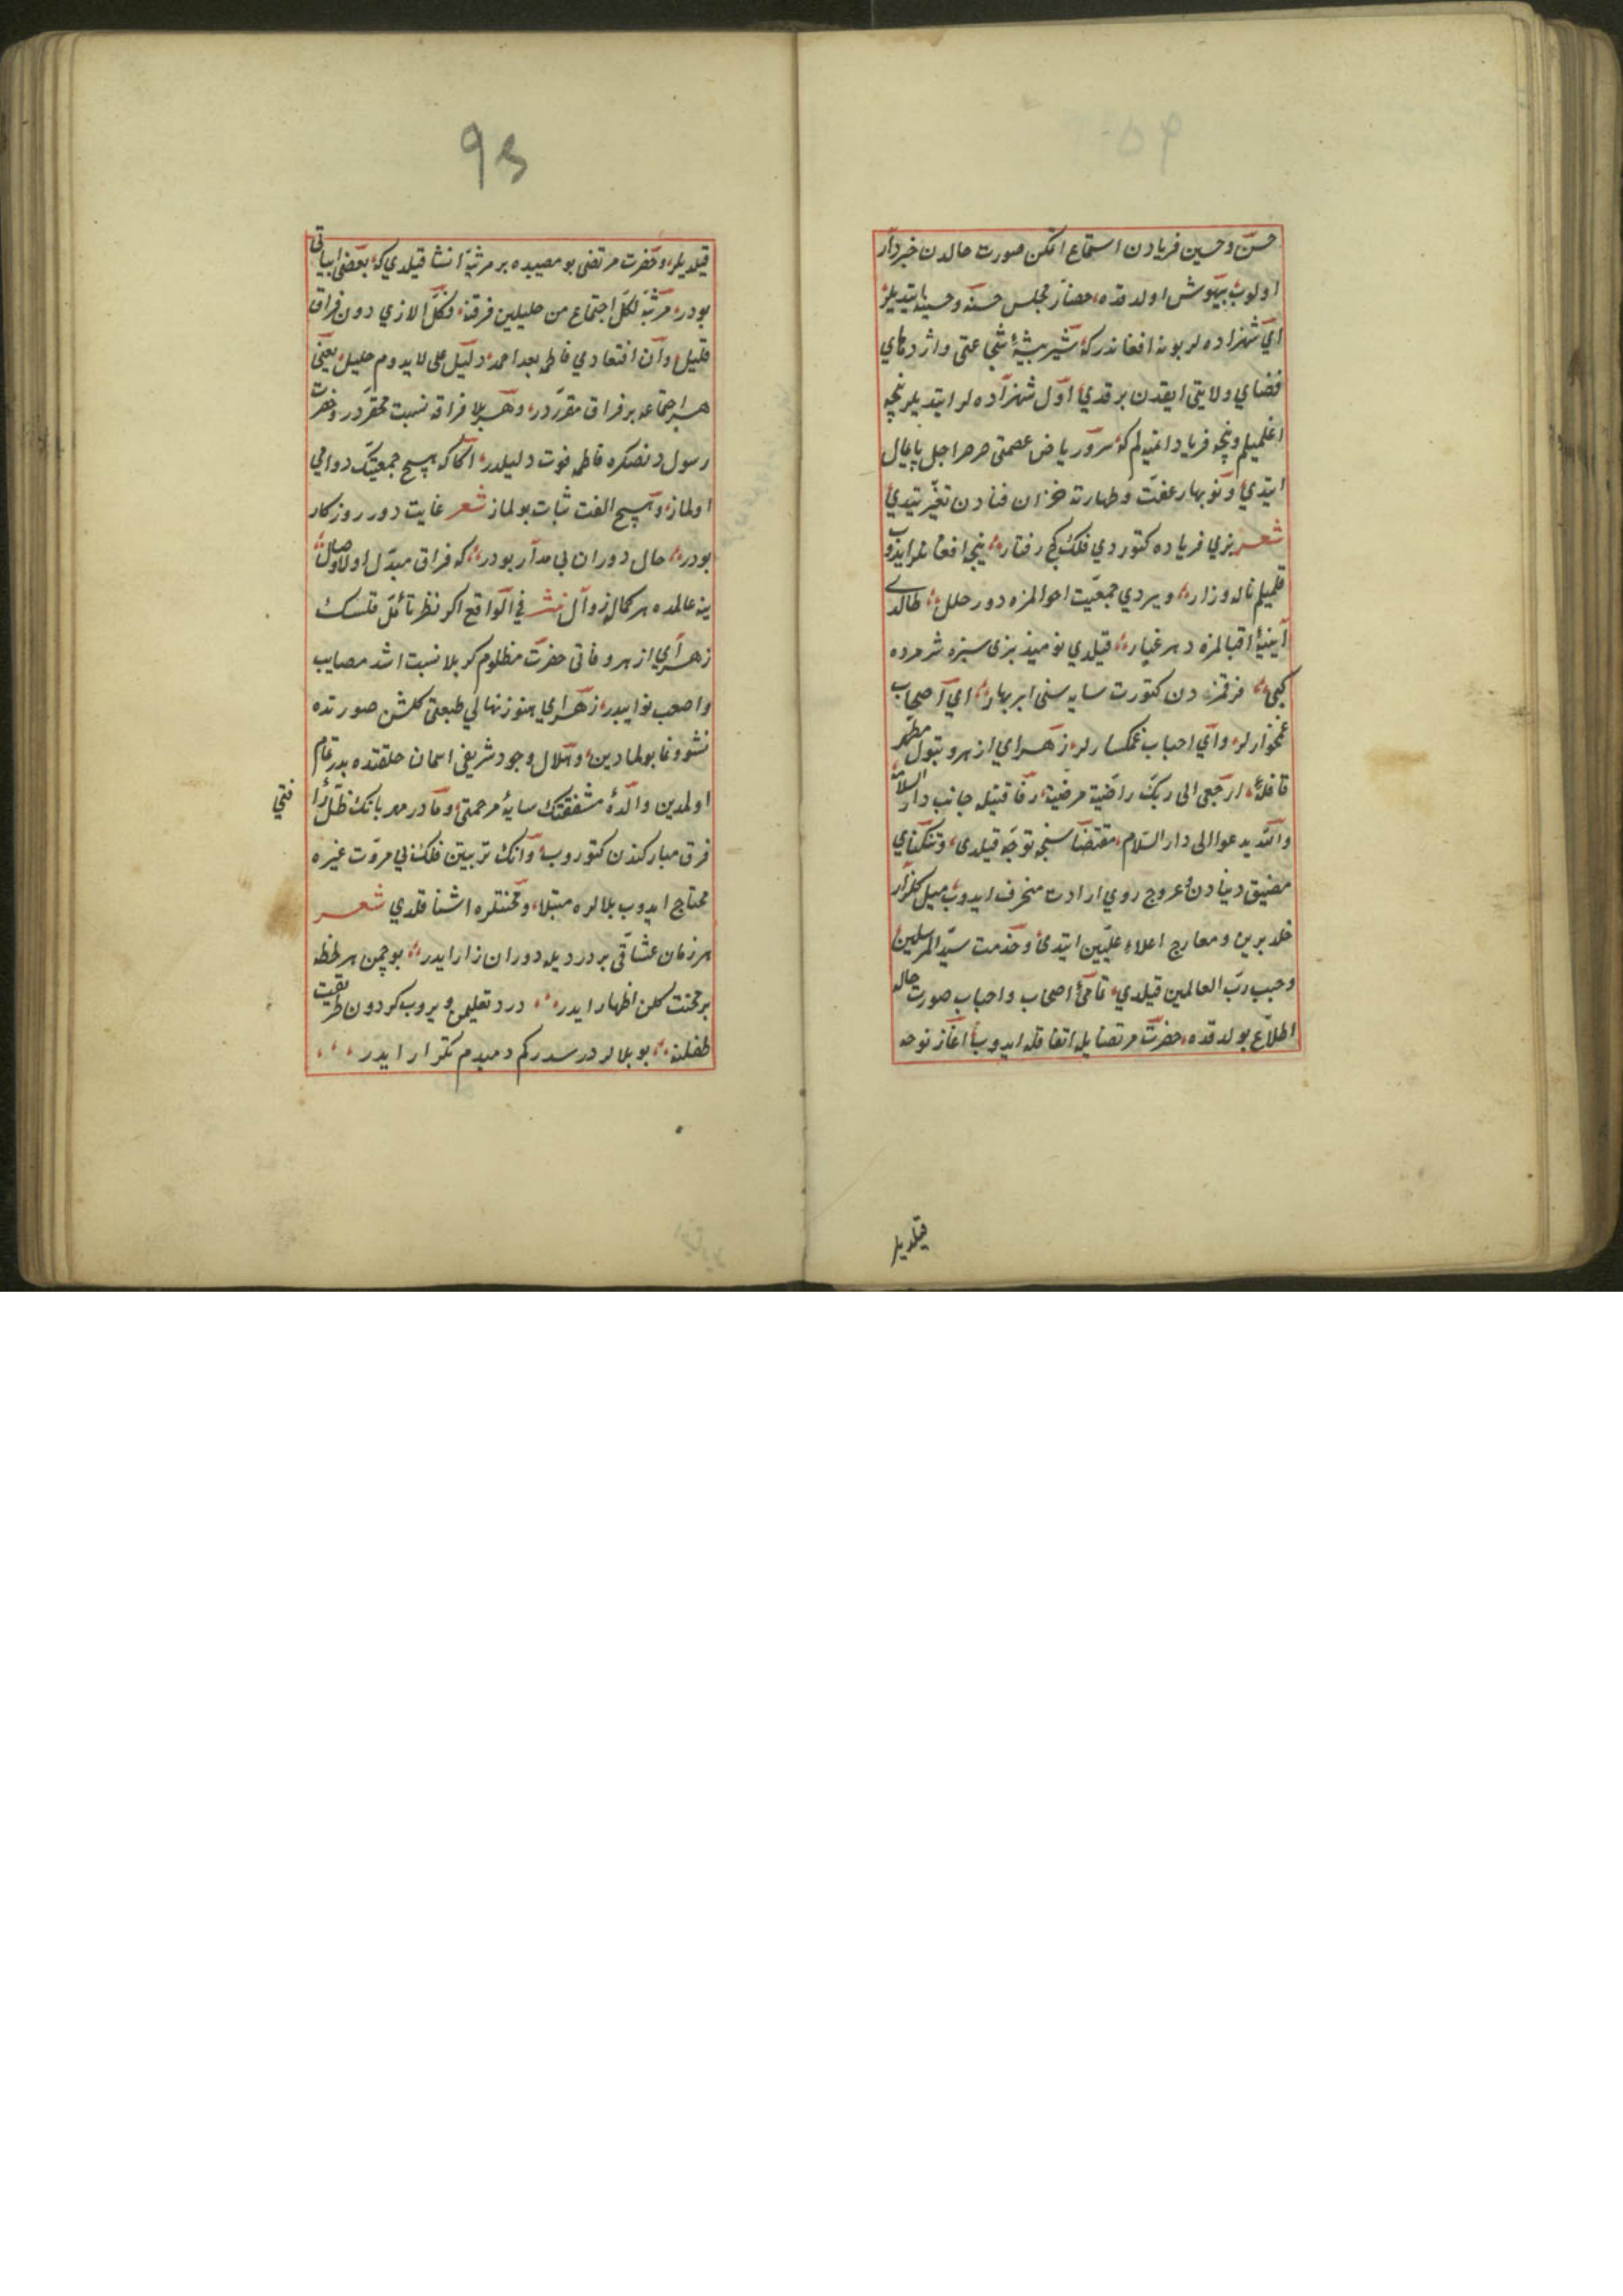 حسن و حسین فریادن استماع ایتکن صورت حالدن خبردار
اولوب بیهوش اولدقده حضار مجلس حسنه و حسینه ایتدیلر
ای شهزاده لر بو نه افغاندر که شیر بیشهٔ شجاعتی و اژدهای
فضای ولایتی ایقدن برقدی اول شهزاده لر ایتدیلر نیجه
اغلمیلم و نیجه فریاد اتمیه لم که سرو ریاض عصمتی صرصر اجل پایمال
ایتدی و نوبهار عفت و طهارته خزان فنادن تغیر یتدی
شعر بزی فریاده کتوردی فلک کج رفتار نیجه افغانلر ایدوب
قلمیلم ناله و زار ویردی جمعیت احوالمزه دور خلل طالدی
آیینهٔ اقبالمزه دهر غبار قیلدی نومید بزی سبزه پژمرده
کبی فرقمزدن کتورت سایه سنی ابر بهار ای اصحاب
غمخوارلر و ای احباب غمکسارلر زهرای ازهر و بتول مطهر
قافلهٔ ارجعی الی ربک راضیة مرضیة رفاقتیله جانب دار السلامه
والله یدعوا الی دار السلام مقتضاسنجه توجه قیلدی و تنکنای
مضیق دنیادن عروج روی ارادت منحرف ایدوب میل کلزار
خلد برین و معارج اعلاء علیین ایتدی و خدمت سید المرسلین
و حبیب رب العالمین قیلدی تمامی اصحاب و احباب صورت حاله
اطلاع بولدقده حضرت مرتضایله اتفاقله ایدوب اغاز نوحه
قیلدیلر
93
قیلدیلر و حضرت مرتضی بو مصیبده بر مرثیه انشا قیلدی که بعضی ابیاتی
بودر مرثیه لکل اجتماع من خلیلین فرقة و کل الذی دون فراق
قلیل و ان افتقادی فاطم بعد احمد دلیل علی لا یدوم خلیل یعنی
هر اجتماعه بر فراق مقرردر و هر بلا فراقه نسبت محقردر و حضرت
رسولدنصکره فاطمه فوت دلیلدر اکا که هیچ جمعیتک دوامی
اولماز و هیچ الفت ثبات بولماز شعر غایت دور روزکار
بودر حال دوران بی مدار بودر که فراق مبدل اولا وصال
ینه عالمده هر کماله زوال نثر فی الواقع اکر نظر تأمل قلسک
زهرای ازهر وفاتی حضرت مظلوم کربلا نسبت اشد مصایب
و اصعب نوایبدر زهرای هنوز نهالی طبعتی کلشن صورتده
نشو و نما بولمادین و هلال وجود شریفی اسمان خلقتده بدر تمام
اولمدین والدهٔ مشفقتک سایهٔ مرحمتی و مادر مهربانک ظل رأ
فتی
فرق مبارکندن کتوروب و انک تربیتن فلک بی مروت غیره
محتاج ایدوب بلالره مبتلا و محنتلره اشنا قلدی شعر
هر زمان عشاقی بر دردیله دوران زار ایدر بو چمن هر لحظه
بر محنت کلن اظهار ایدر درد تعلیمن ویروب کردون طریقت
طفلنه بو بلالر درسدر کم دمبدم تکرار ایدر